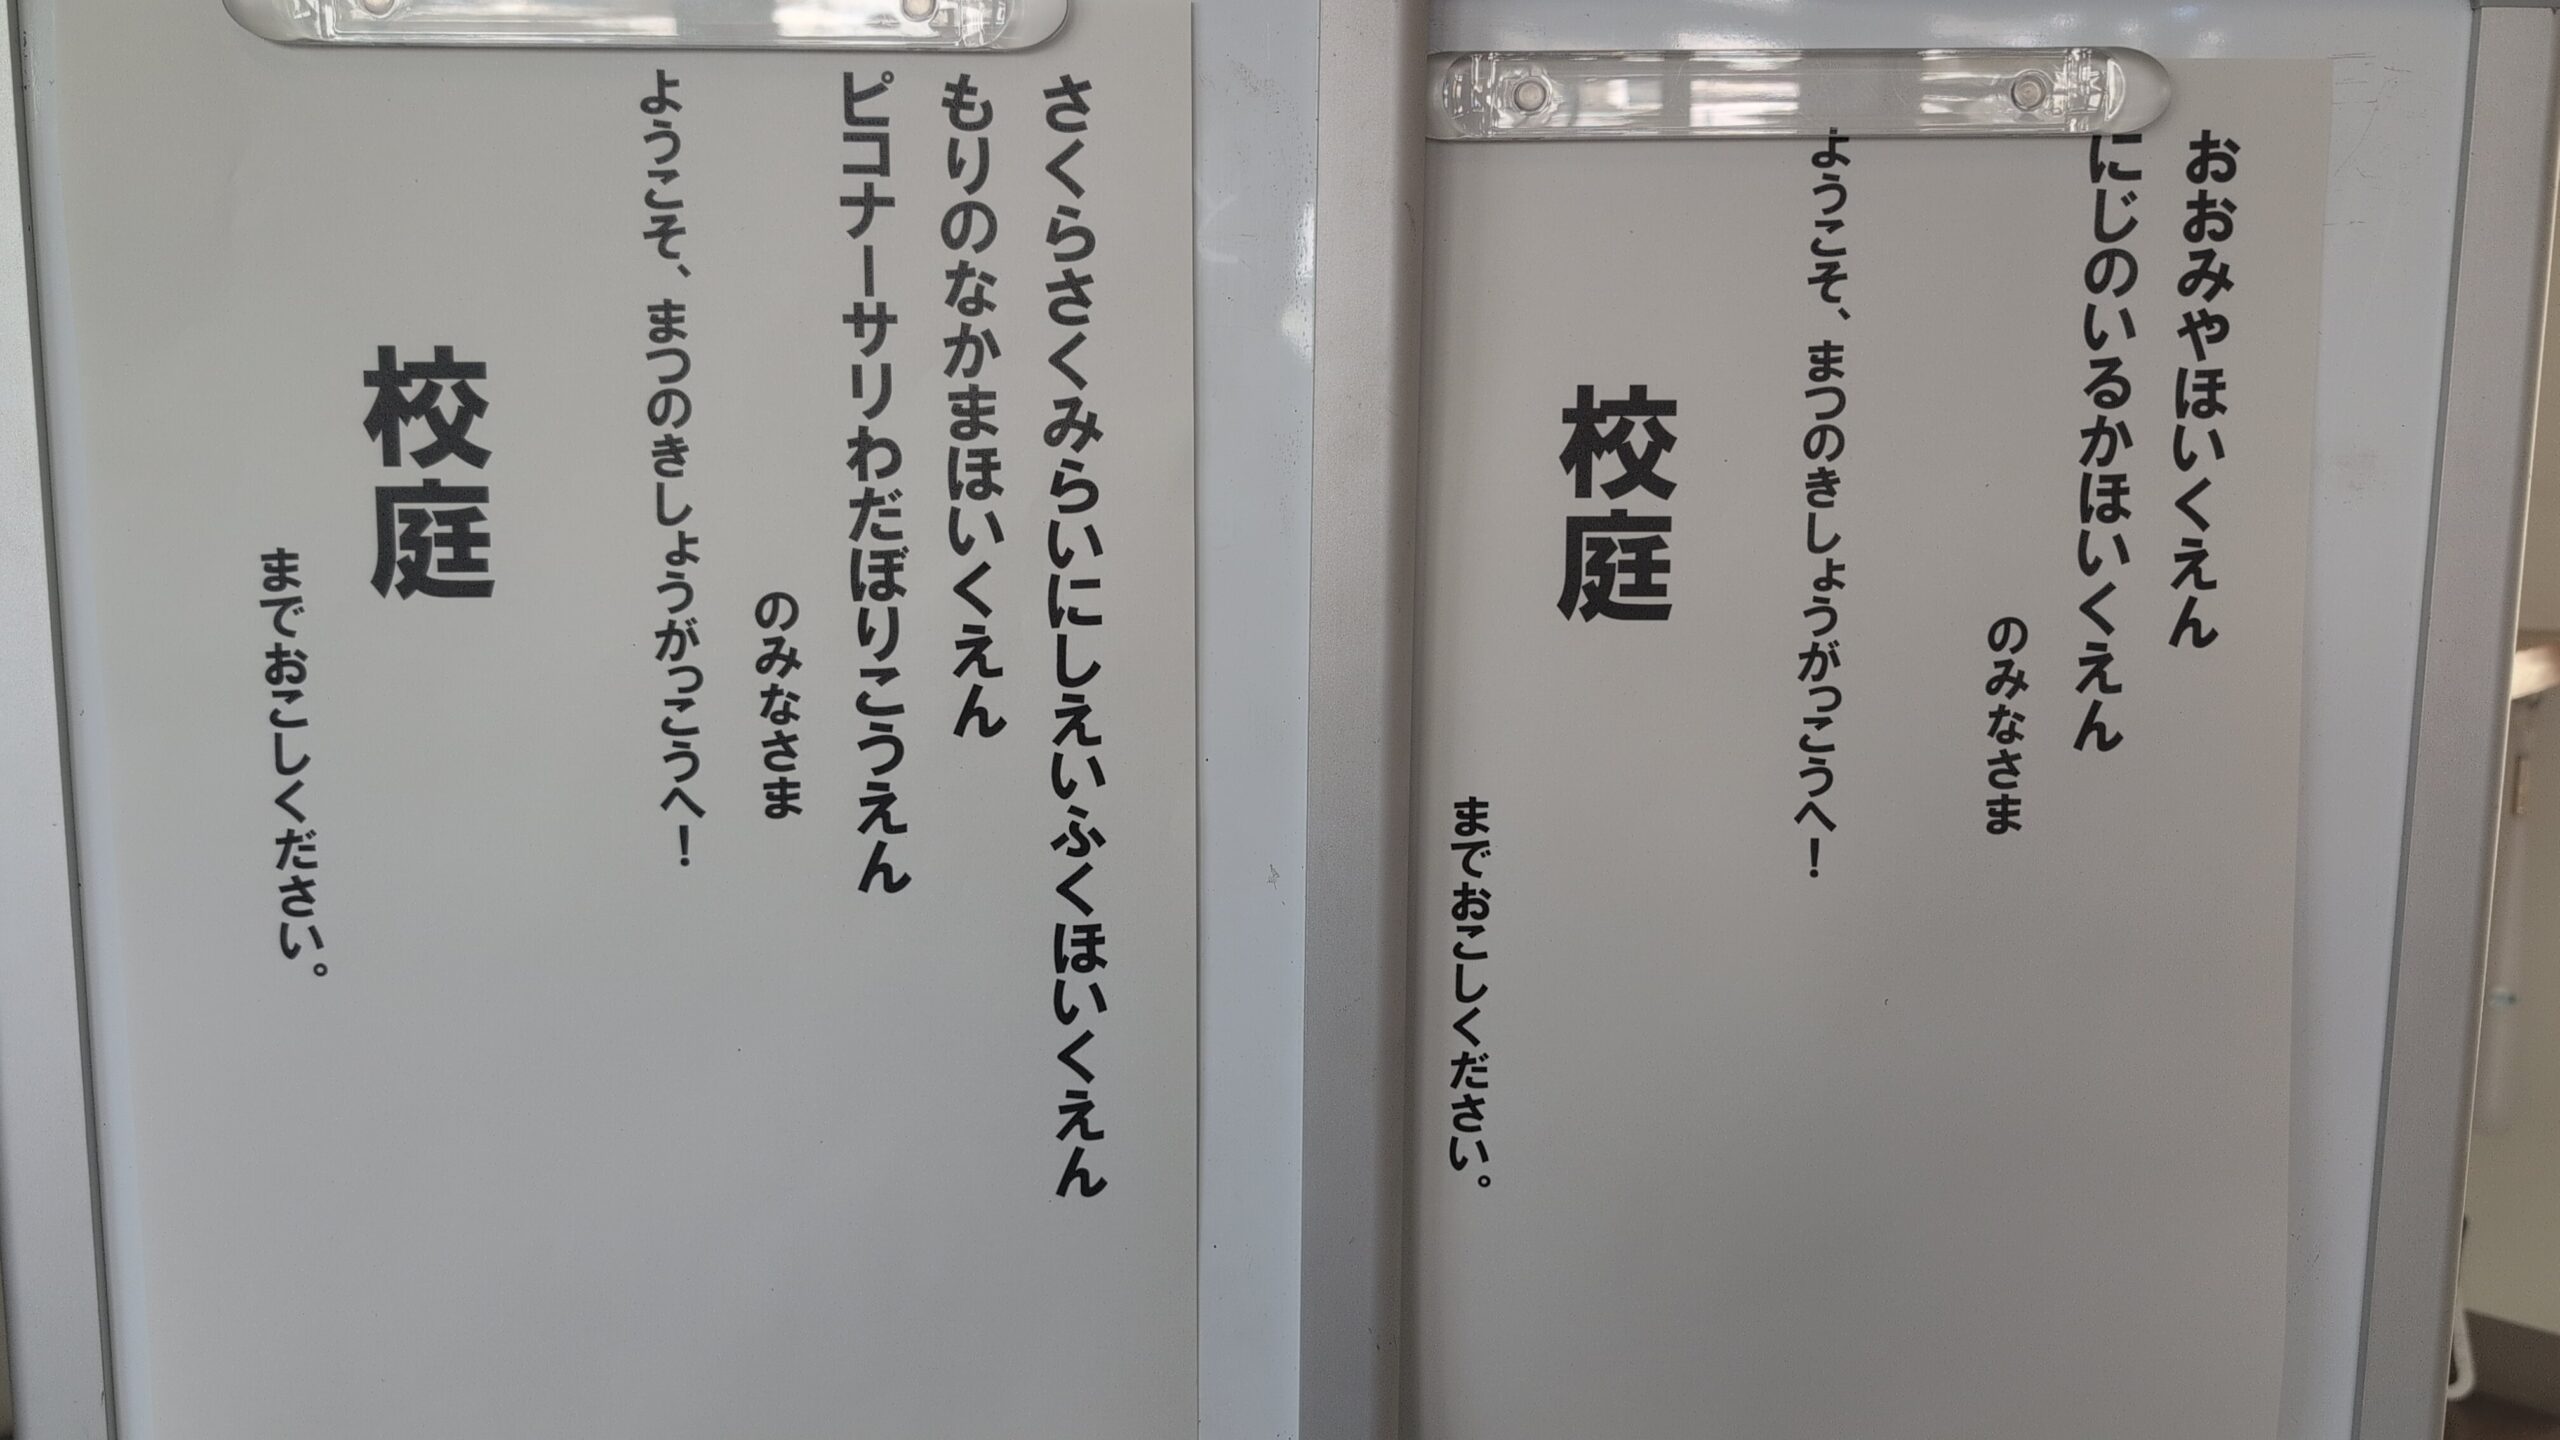 おおみやほいくえん
にじのいるかほいくえん
のみなさま
ようこそ、まつのきしょうがっこうへ！
校庭
までおこしください。
さくらさくみらいにしえいふくほいくえん
もりのなかまほいくえん
ピコナーサリわだぼりこうえん
のみなさま
ようこそ、まつのきしょうがっこうへ！
校庭
までおこしください。